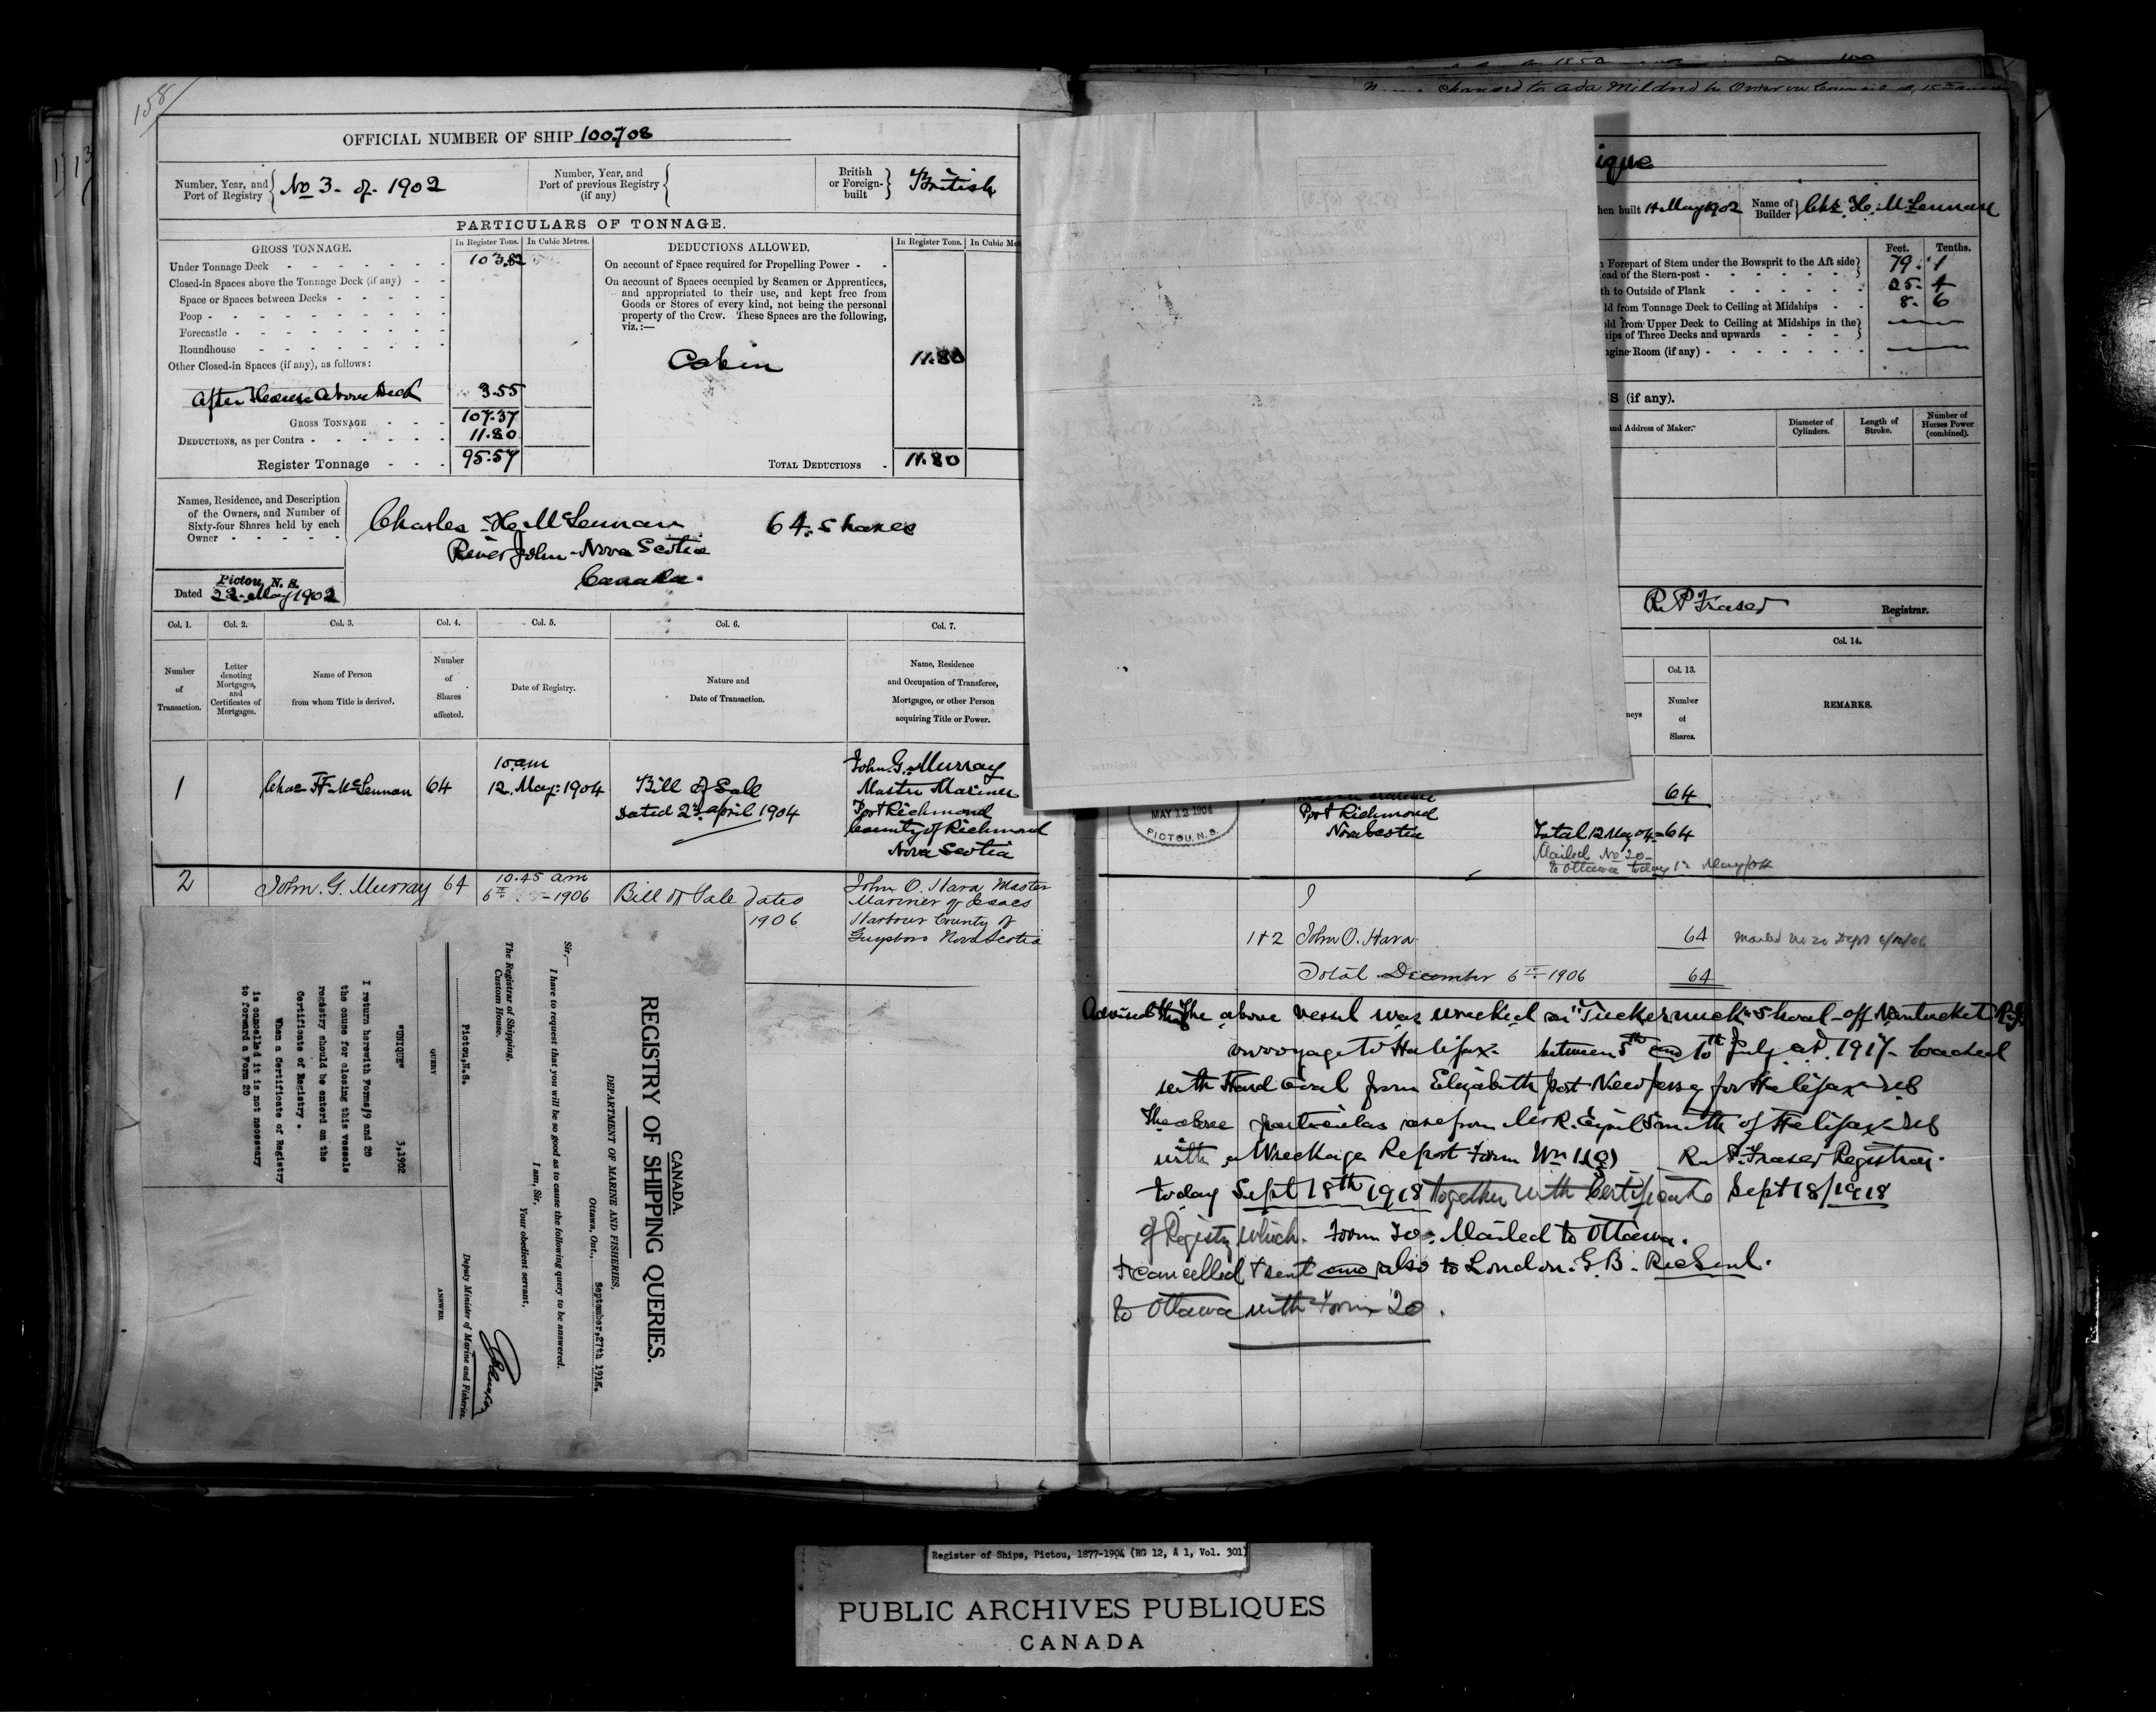 158/
OFFICIAL NUMBER OF SHIP 100.708
Number, Year, and Port of Registry No 3. of. 1902
Number, Year, and Port of previous Registry (if any)
British or Foreign-built British
PARTICULARS OF TONNAGE.
GROSS TONNAGE.
In Register Tons. In Cubic Metres.
Under Tonnage Deck 103.82
Closed-in Spaces above the Tonnage Deck (if any)
Space or Spaces between Decks
Poop
Forecastle
Roundhouse
Other Closed-in Spaces (if any), as follows:
After House Above Deck 3.55
GROSS TONNAGE 107.37
DEDUCTIONS, as per Contra 11.80
Register Tonnage 95.57
DEDUCTIONS ALLOWED.
In Register Tons. In Cubic Met
On account of Space required for Propelling Power
On account of Spaces occupied by Seamen or Apprentices,
and appropriated to their use, and kept free from
Goods or Stores of every kind, not being the personal
property of the Crew. These Spaces are the following,
viz.:—
Cabin 11.80
TOTAL DEDUCTIONS 11.80
Names, Residence, and Description
of the Owners, and Number of
Sixty-four Shares held by each
Owner
Charles H. McLennan 64. Shares
River John - Nova Scotia
Canada.
Pictou, N. S.
Dated 22. May 1902
Col. 1. Col. 2. Col. 3. Col. 4. Col. 5. Col. 6. Col. 7.
Number of Transaction.
Letter denoting Mortgages, and Certificates of Mortgages.
Name of Person from whom Title is derived.
Number of Shares affected.
Date of Registry.
Nature and Date of Transaction.
Name, Residence and Occupation of Transferee, Mortgagee, or other Person acquiring Title or Power.
1 Chas H. McLennan 64
10 am
12. May. 1904
Bill of Sale
Dated 2nd april 1904
John. G. Murray
Master Mariner
Port Richmond
County of Richmond
Nova Scotia
2 John. G. Murray 64
10.45 am
6th 1906
Bill of Sale dated
1906
John O. Hara Master
Mariner of Isaacs
Harbour County of
Guysboro Nova Scotia
CANADA.
REGISTRY OF SHIPPING QUERIES.
DEPARTMENT OF MARINE AND FISHERIES,
Ottawa, Ont., September,27th 1918.
Sir,—
I have to request that you will be so good as to cause the following query to be answered.
I am, Sir,
Your obedient servant,
Deputy Minister of Marine and Fisheries.
The Registrar of Shipping,
Custom House.
Pictou,N.S.
QUERY ANSWER
"UNIQUE" 3,1902
I return herewith Forms 19 and 20
the cause for closing this vessels
registry should be entered on the
Certificate of Registry.
When a Certificate of Registry
is cancelled it is not necessary
to forward a Form 20
Name changed to Ada Mildred by Order in Council
ique
hen built 14 May 1902
Name of Builder Chs. H. McLennan
Feet. Tenths.
Forepart of Stem under the Bowsprit to the Aft side
ead of the Stern-post 79. 1
th to Outside of Plank 25. 4
ld from Tonnage Deck to Ceiling at Midships 8. 6
old from Upper Deck to Ceiling at Midships in the
hips of Three Decks and upwards
ngine-Room (if any)
S (if any).
and Address of Maker.
Diameter of Cylinders.
Length of Stroke.
Number of Horses Power (combined).
R. P. Fraser Registrar.
Col. 13. Col. 14.
neys
Number of Shares.
REMARKS.
MAY 12 1904
PICTOU, N.S.
64
Port Richmond
Nova Scotia
Total 12 May 04 = 64
Mailed No 20
to Ottawa today
1+2 John O. Hara 64
Total December 6th 1906 64
The above vessel was wrecked on "Tuckernuck" Shoal - off Nantucket R.I.
on voyage to Halifax - between 5th and 10th July A.D. 1917 - loaded
with Hard Coal from Elizabeth port New Jersey for Halifax NS
The above particulars are from Mr R. Smith of Halifax NS
with a Wreckage Report Form
R. P. Fraser Registrar.
today Sept 18th 1918 together with Certificate Sept 18/1918
of Registry which. Form 20. Mailed to Ottawa.
+ cancelled + sent and also to London. G. B.
to Ottawa with Form 20.
Register of Ships, Pictou, 1877-1904 (RG 12, A 1, Vol. 301)
PUBLIC ARCHIVES PUBLIQUES
CANADA